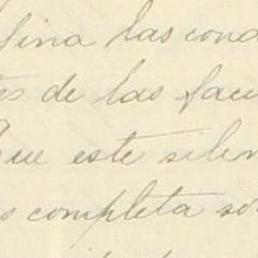 fina las cond
es de las facu
que este silen
completa so